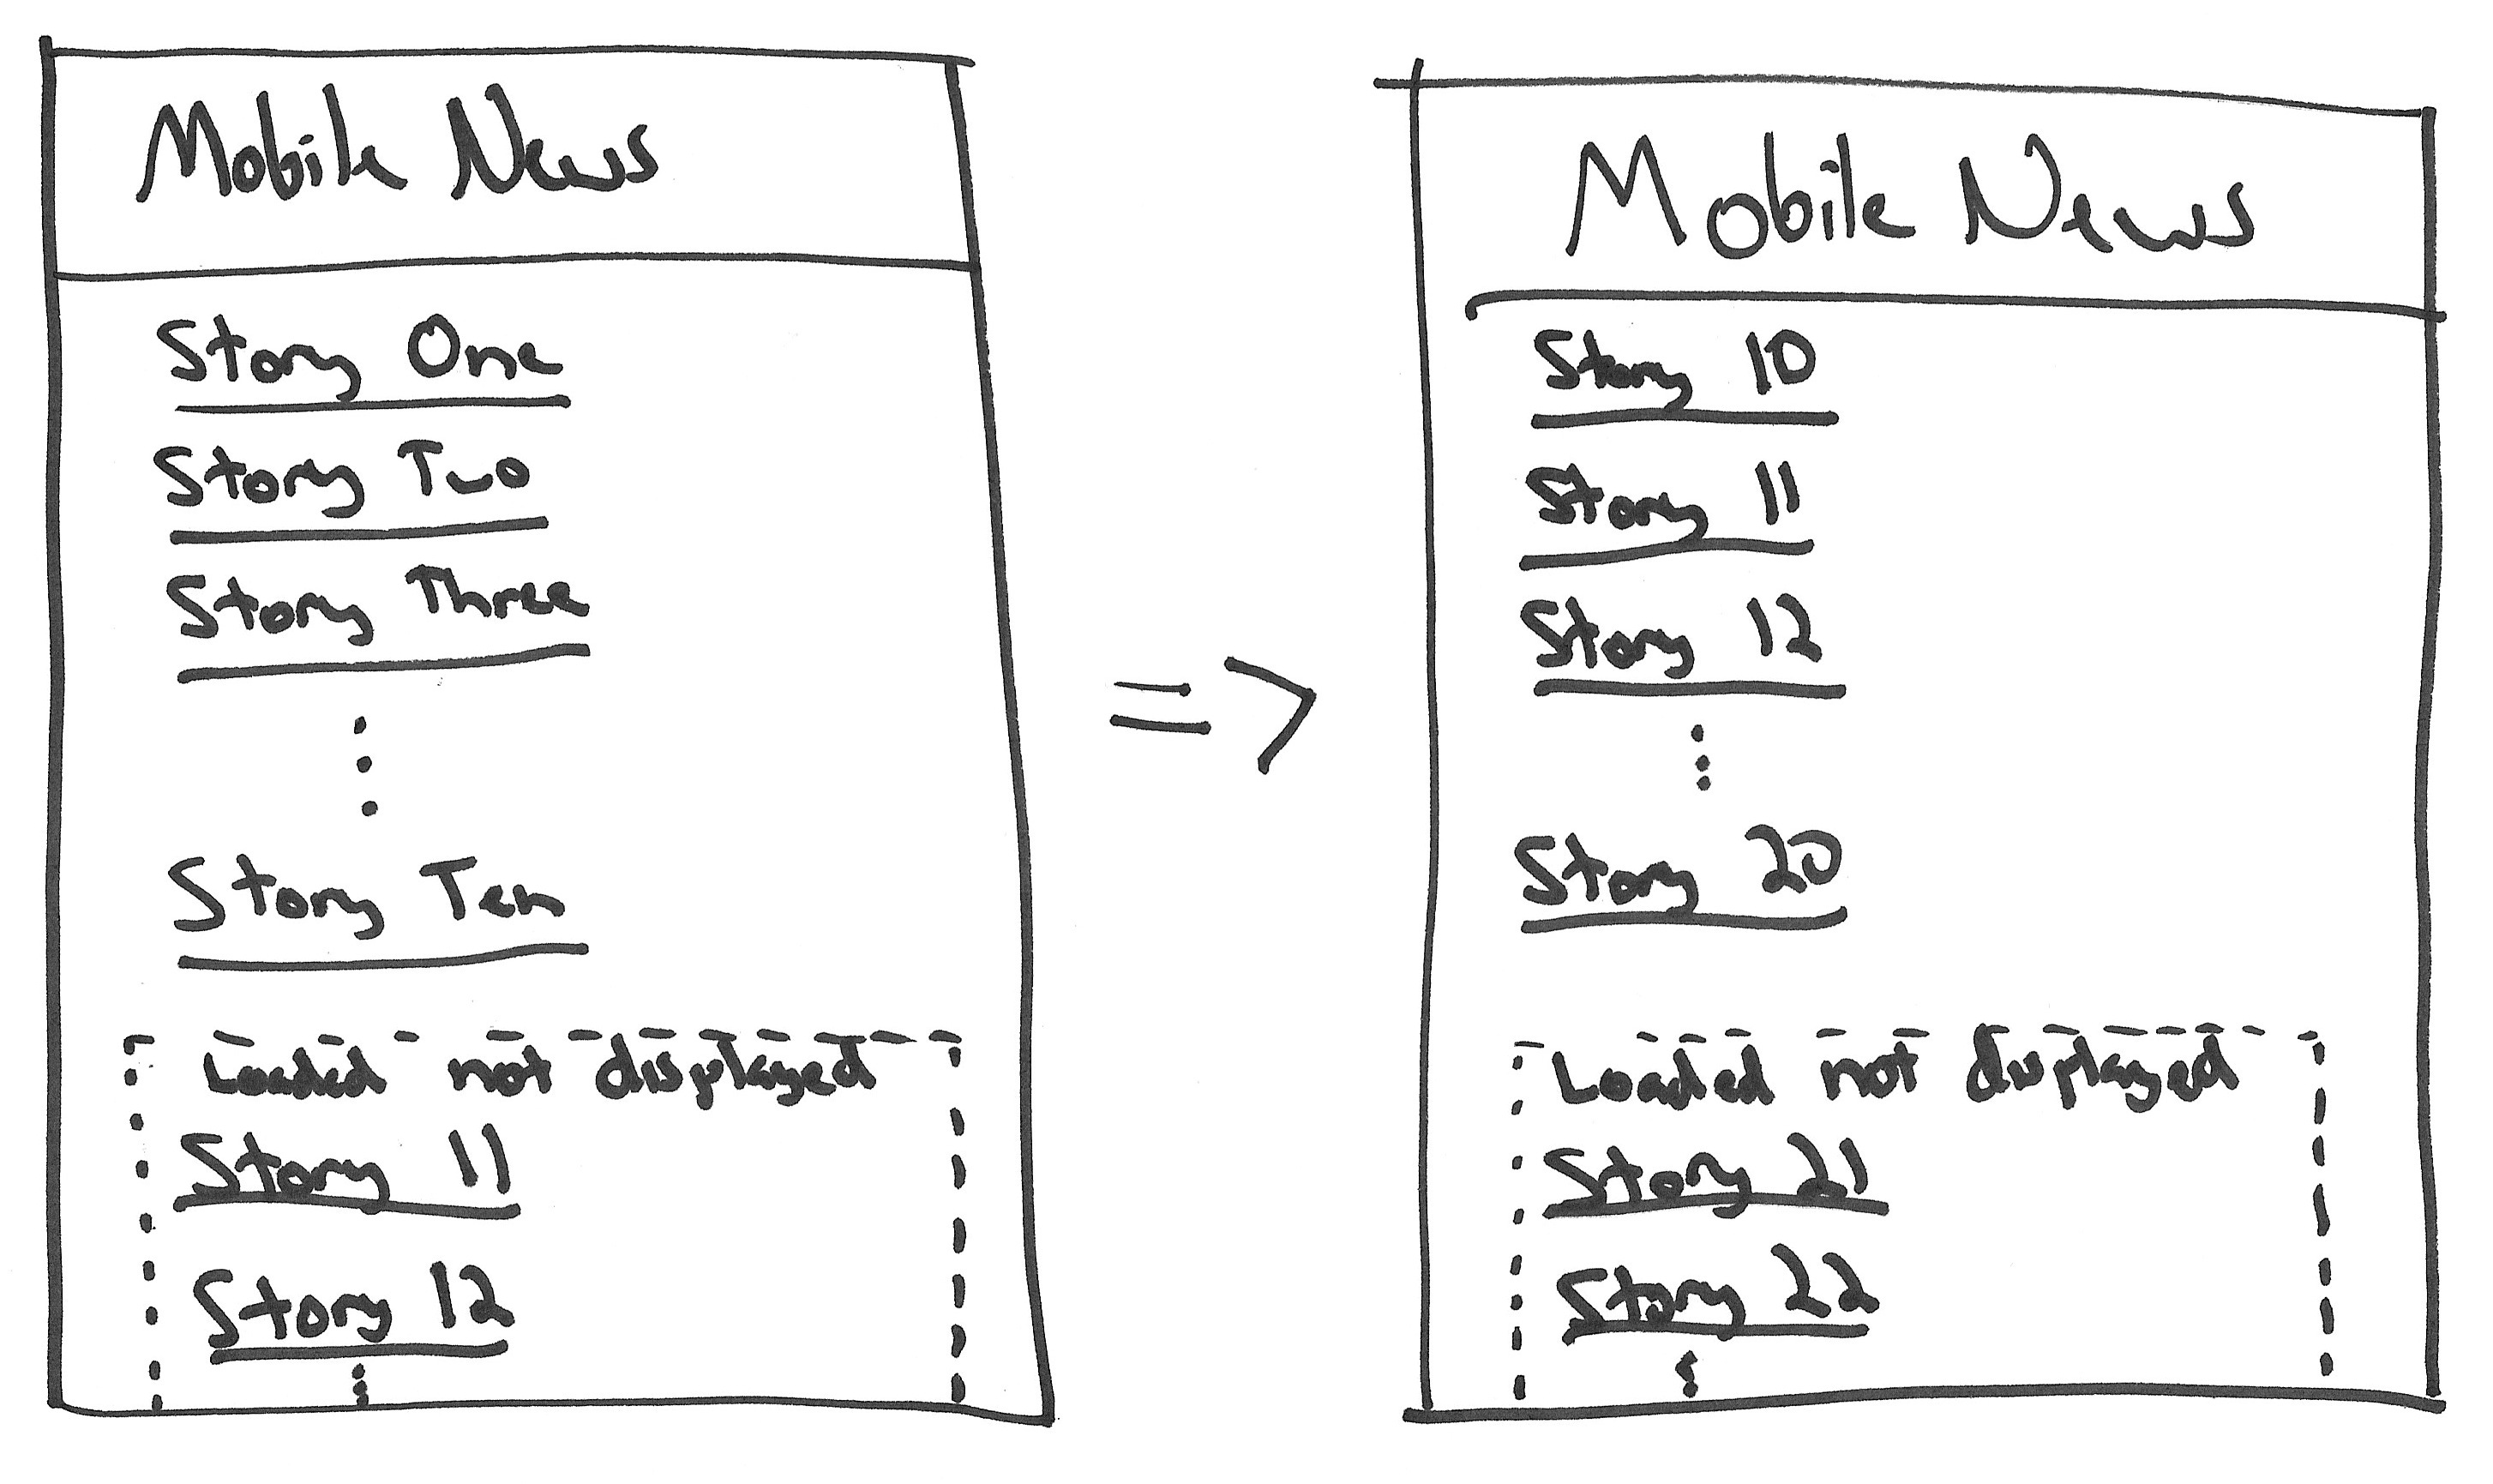 Mobile News
Story One
Story Two
Story Three
Story Ten
Loaded not displayed
Story 11
Story 12
=>
Mobile News
Story 10
Story 11
Story 12
Story 20
Loaded not displayed
Story 21
Story 22